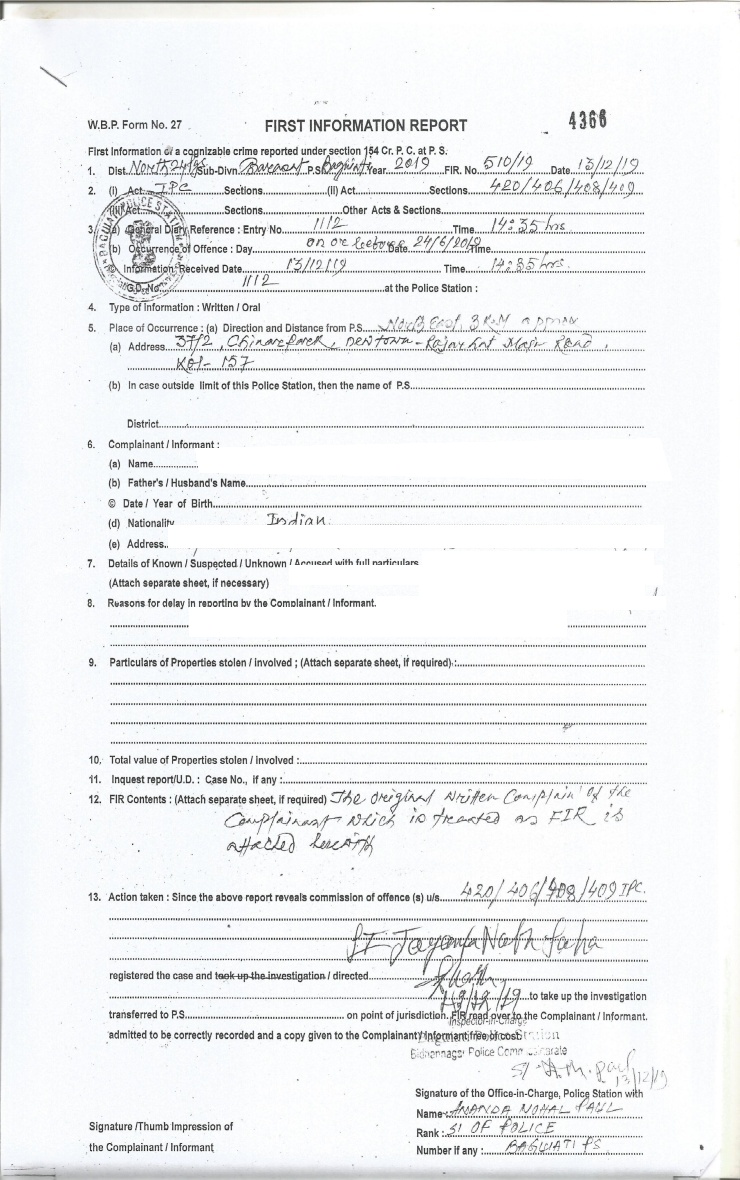 W.B.P. Form No. 27 FIRST INFORMATION REPORT 4366
First Information of a cognizable crime reported under section 154 Cr. P. C. at P. S.
1. Dist. North 24 Pgs Sub-Divn. Barasat P.S. Baguiati Year 2019 FIR. No. 510/19 Date 13/12/19
2. (i) Act IPC Sections (ii) Act Sections 420/406/408/409
Act Sections Other Acts & Sections
3. (a) General Diary Reference : Entry No. 1112 Time 14:35 hrs
(b) Occurrence of Offence : Day on or before Date 24/6/2019 Time
© Information Received Date 13/12/19 Time 14:35 hrs.
G.D. No. 1112 at the Police Station :
4. Type of Information : Written / Oral
5. Place of Occurrence : (a) Direction and Distance from P.S. North East, 3 KM
(a) Address 37/2, Chinarpark, Newtown - Rajarhat Main Road,
Kol- 157
(b) In case outside limit of this Police Station, then the name of P.S.
District
6. Complainant / Informant :
(a) Name
(b) Father's / Husband's Name
© Date / Year of Birth
(d) Nationality Indian
(e) Address
7. Details of Known / Suspected / Unknown / Accused with full particulars
(Attach separate sheet, if necessary)
8. Reasons for delay in reporting by the Complainant / Informant.
9. Particulars of Properties stolen / involved ; (Attach separate sheet, if required) :
10. Total value of Properties stolen / Involved :
11. Inquest report/U.D. : Case No., if any :
12. FIR Contents : (Attach separate sheet, if required) The original written Complain of the
Complainant which is treated as FIR is
attached herewith
13. Action taken : Since the above report reveals commission of offence (s) u/s. 420/406/408/409 IPC.
Jayanta Nath Saha
registered the case and took up the investigation / directed
to take up the investigation
transferred to P.S. on point of jurisdiction. FIR read over to the Complainant / Informant.
Inspector-in-Charge
admitted to be correctly recorded and a copy given to the Complainant/Informant free of cost
Bidhannagar Police Commissionerate
13/12/19
Signature of the Office-in-Charge, Police Station with
Name: ANANDA MOHAL PAUL
Signature /Thumb Impression of
Rank : SI OF POLICE
the Complainant / Informant
Number if any : BAGUIATI PS